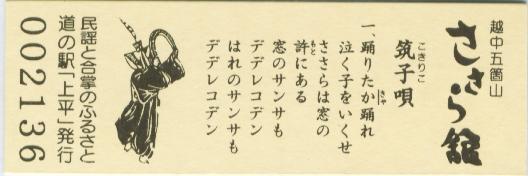 越中五箇山
ささら館
こきりこ
筑子唄
一、踊りたか踊れ
泣く子をいくせ
きゃ
ささらは窓の
もと
許にある
窓のサンサも
デデレコデン
はれのサンサも
デデレコデン
民謡と合掌のふるさと
道の駅「上平」発行
002136